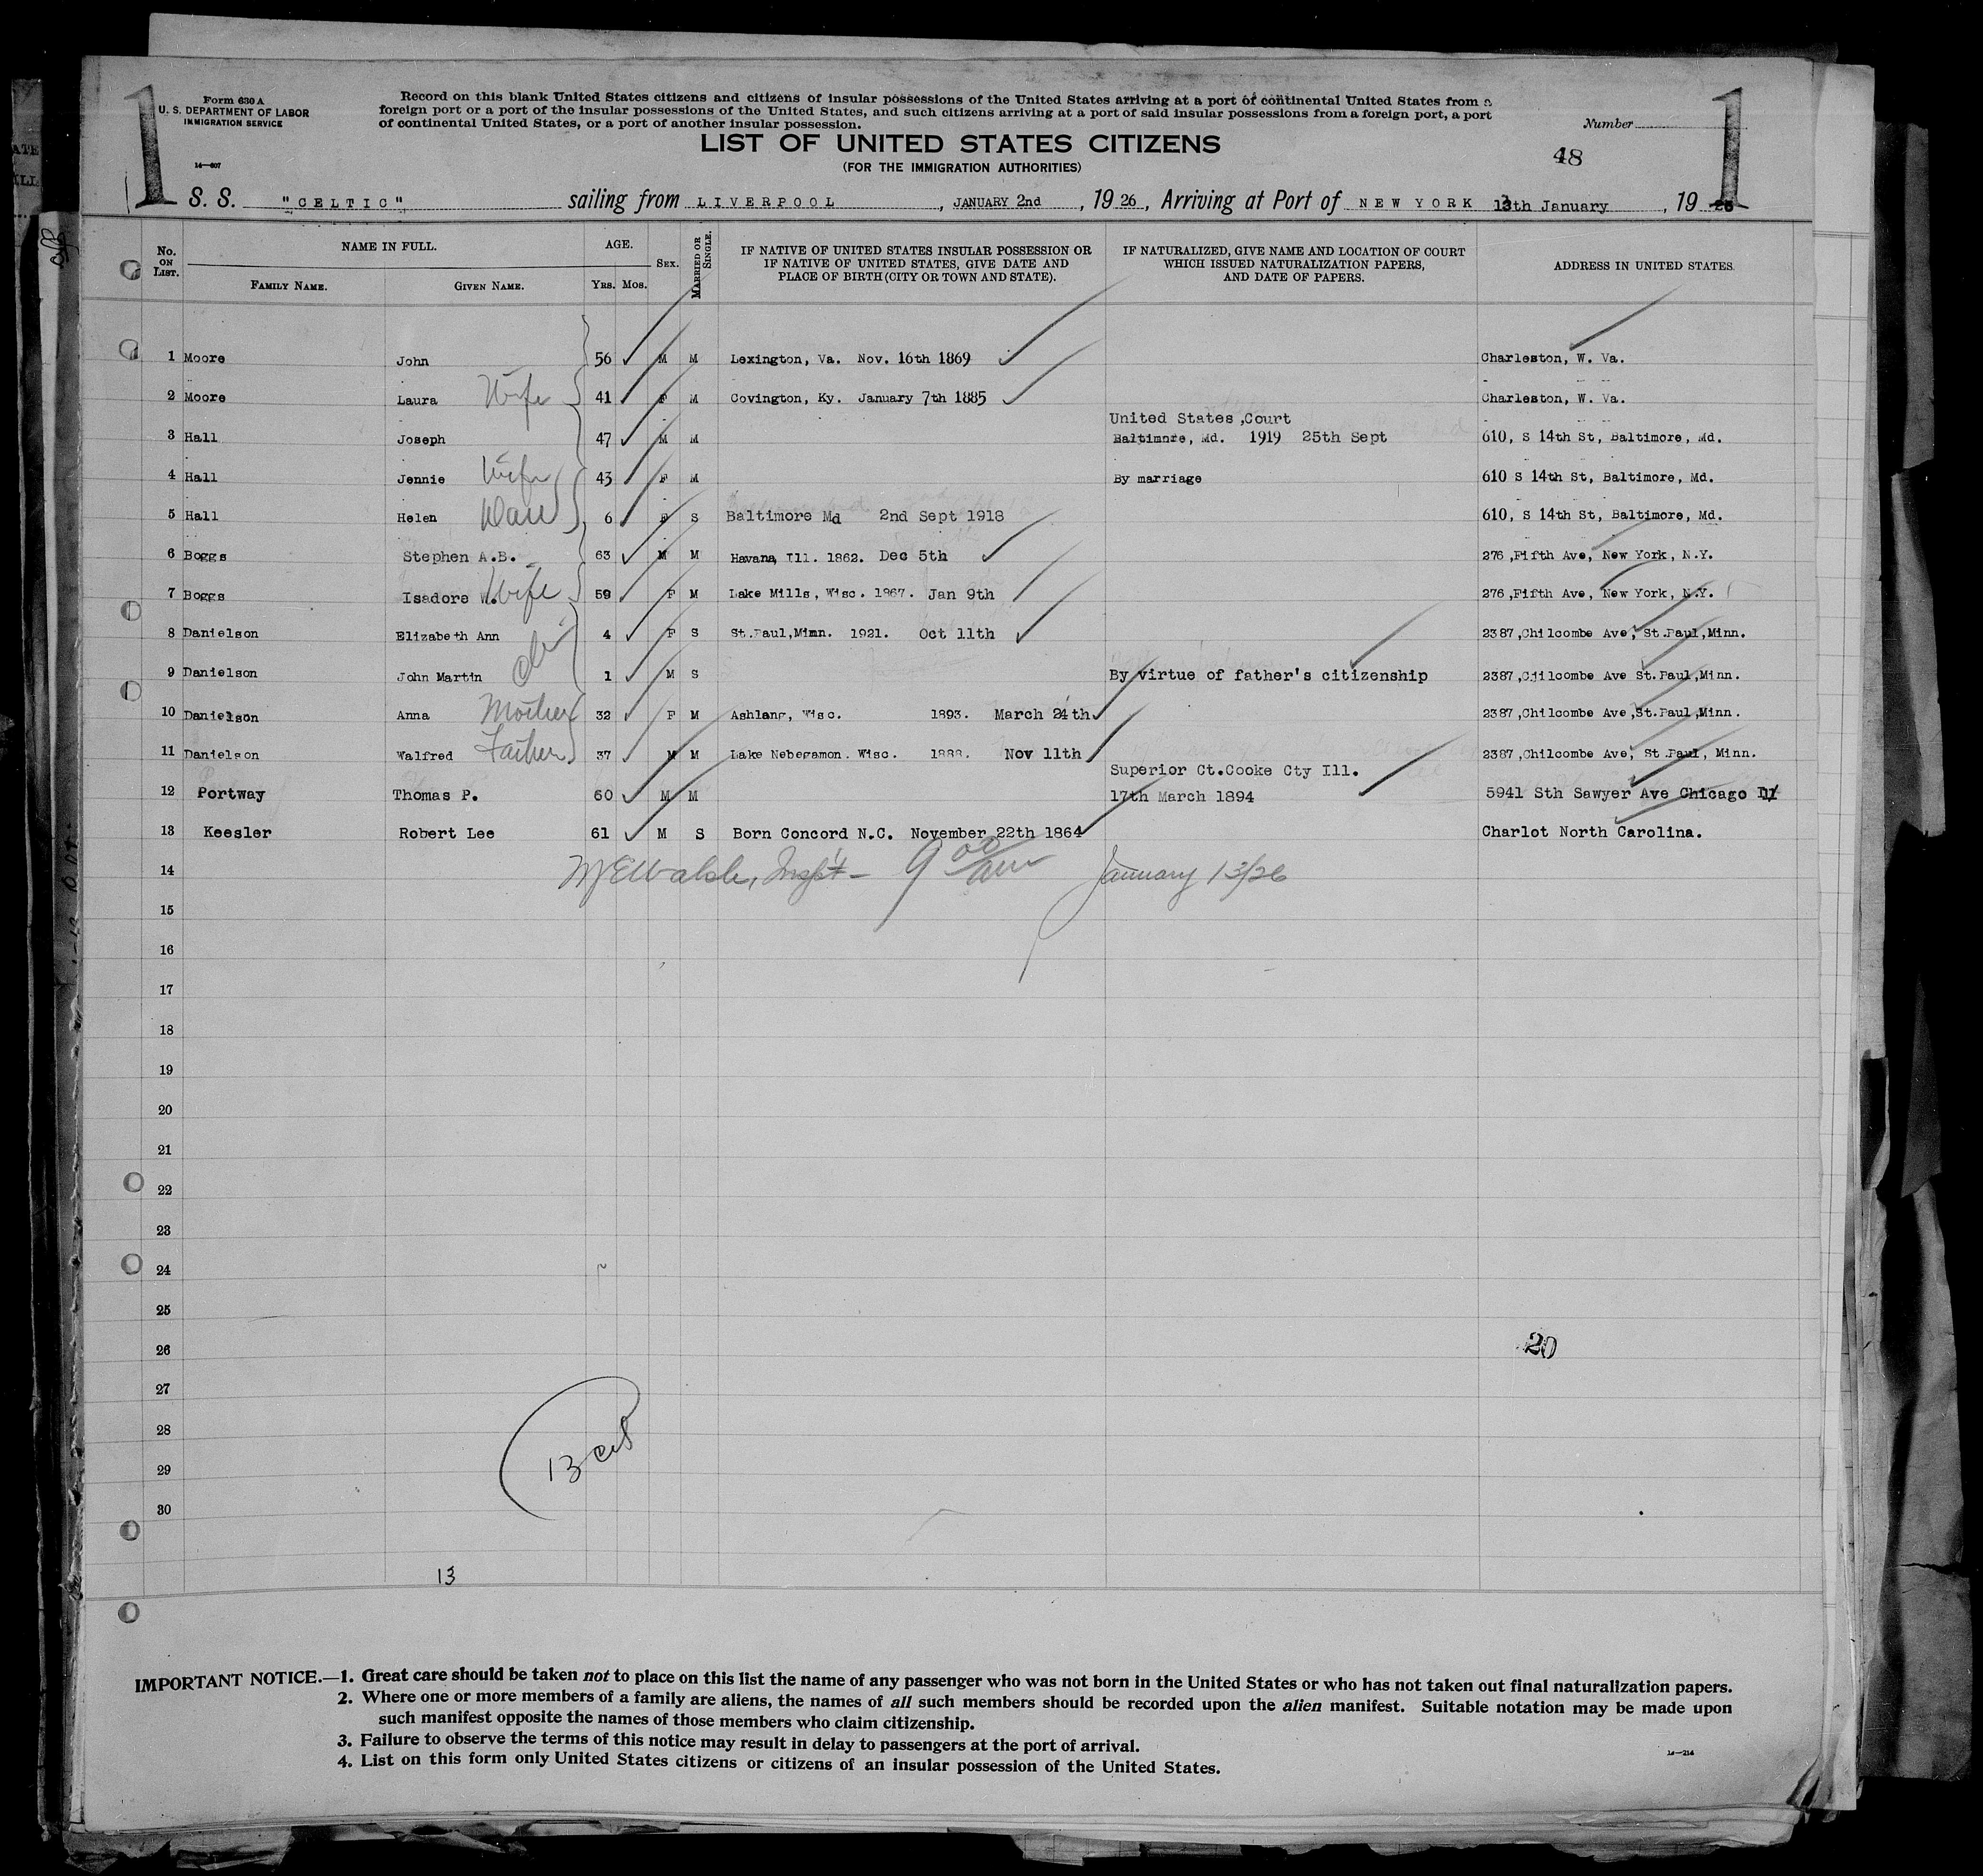 1
Form 630 A
U. S. DEPARTMENT OF LABOR
IMMIGRATION SERVICE
14—607
Record on this blank United States citizens and citizens of insular possessions of the United States arriving at a port of continental United States from a
foreign port or a port of the insular possessions of the United States, and such citizens arriving at a port of said insular possessions from a foreign port, a port
of continental United States, or a port of another insular possession.
LIST OF UNITED STATES CITIZENS
(FOR THE IMMIGRATION AUTHORITIES)
Number
48
1
S. S. "CELTIC" sailing from LIVERPOOL, JANUARY 2nd, 1926, Arriving at Port of NEW YORK 13th January, 1926
No. ON LIST. NAME IN FULL. FAMILY NAME. GIVEN NAME. AGE. YRS. MOS. SEX. MARRIED OR SINGLE. IF NATIVE OF UNITED STATES INSULAR POSSESSION OR IF NATIVE OF UNITED STATES, GIVE DATE AND PLACE OF BIRTH (CITY OR TOWN AND STATE). IF NATURALIZED, GIVE NAME AND LOCATION OF COURT WHICH ISSUED NATURALIZATION PAPERS, AND DATE OF PAPERS. ADDRESS IN UNITED STATES.
1 Moore John 56 M M Lexington, Va. Nov. 16th 1869 Charleston, W. Va.
2 Moore Laura Wife 41 F M Covington, Ky. January 7th 1885 Charleston, W. Va.
United States, Court
3 Hall Joseph 47 M M Baltimore, Md. 1919 25th Sept 610, S 14th St, Baltimore, Md.
4 Hall Jennie Wife 43 F M By marriage 610 S 14th St, Baltimore, Md.
5 Hall Helen Dau 6 F S Baltimore Md 2nd Sept 1918 610, S 14th St, Baltimore, Md.
6 Boggs Stephen A.B. 63 M M Havana, Ill. 1862. Dec 5th 276, Fifth Ave, New York, N.Y.
7 Boggs Isadore W. Wife 59 F M Lake Mills, Wisc. 1867. Jan 9th 276, Fifth Ave, New York, N.Y.
8 Danielson Elizabeth Ann 4 F S St.Paul, Minn. 1921. Oct 11th 2387, Chilcombe Ave, St.Paul, Minn.
9 Danielson John Martin 1 M S By virtue of father's citizenship 2387, Cjilcombe Ave St.Paul, Minn.
10 Danielson Anna Mother 32 F M Ashlang, Wisc. 1893. March 24th 2387, Chilcombe Ave, St.Paul, Minn.
11 Danielson Walfred Father 37 M M Lake Nebegamon. Wisc. 1888. Nov 11th 2387, Chilcombe Ave, St Paul, Minn.
Superior Ct.Cooke Cty Ill.
12 Portway Thomas P. 60 M M 17th March 1894 5941 Sth Sawyer Ave Chicago Ill
13 Keesler Robert Lee 61 M S Born Concord N.C. November 22th 1864 Charlot North Carolina.
14 Walsh, Insp't - 9 00 am January 13/26
15
16
17
18
19
20
21
22
23
24
25
26 20
27
28
29 13
30
13
IMPORTANT NOTICE.—1. Great care should be taken not to place on this list the name of any passenger who was not born in the United States or who has not taken out final naturalization papers.
2. Where one or more members of a family are aliens, the names of all such members should be recorded upon the alien manifest. Suitable notation may be made upon
such manifest opposite the names of those members who claim citizenship.
3. Failure to observe the terms of this notice may result in delay to passengers at the port of arrival.
4. List on this form only United States citizens or citizens of an insular possession of the United States.
14—214